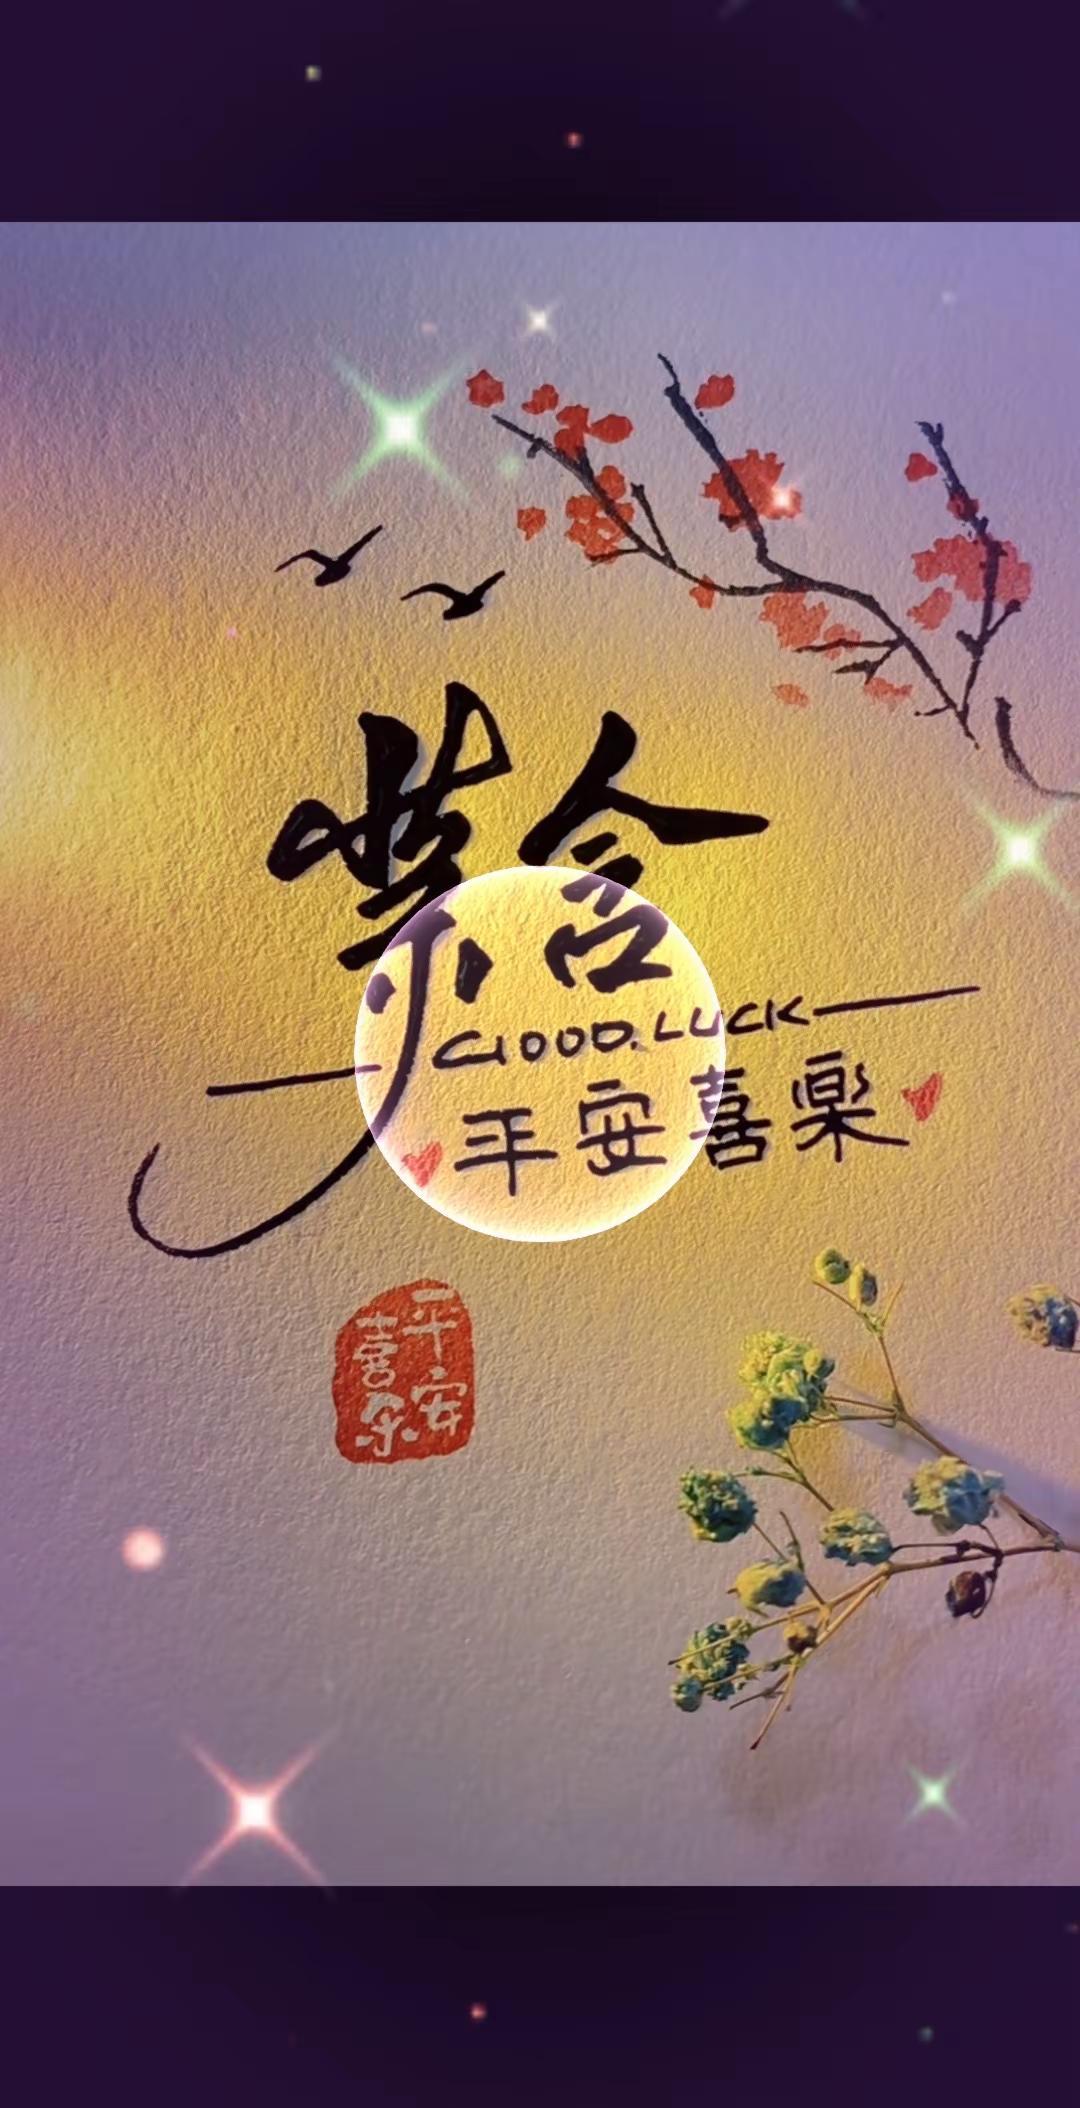 紫含
GOOD. LUCK
平安喜楽
平安
喜乐